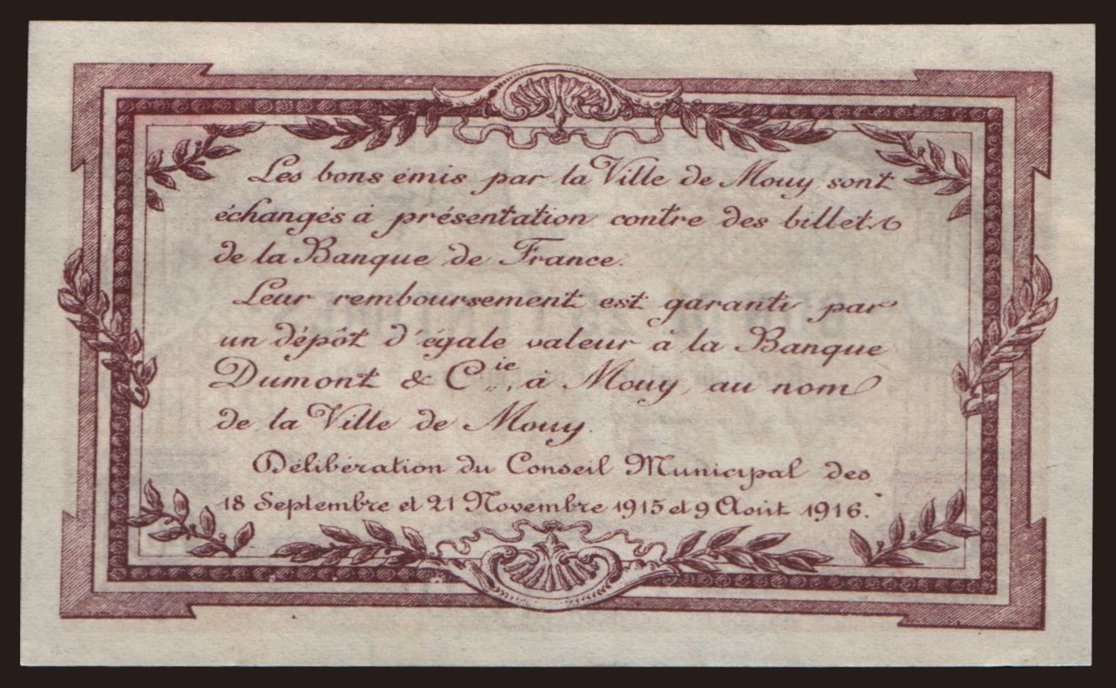 Les bons émis par la Ville de Mouy sont
échangés à présentation contre des billets
de la Banque de France.
Leur remboursement est garanti par
un dépôt d'égale valeur à la Banque
Dumont & Cie, à Mouy, au nom
de la Ville de Mouy.
Délibération du Conseil Municipal des
18 Septembre et 21 Novembre 1915 et 9 Août 1916.